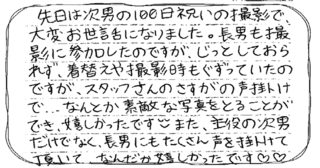 先日は次男の100日祝いの撮影で、
大変お世話になりました。長男も撮
影に参加したのですが、じっとしておら
れず、着替えや撮影時もぐずっていたの
ですが、スタッフさんのさすがの声掛け
で…なんとか素敵な写真をとることが
でき、嬉しかったです☺また、主役の次男
だけでなく、長男にもたくさん声を掛けて
頂いて、なんだか嬉しかったです♡♡